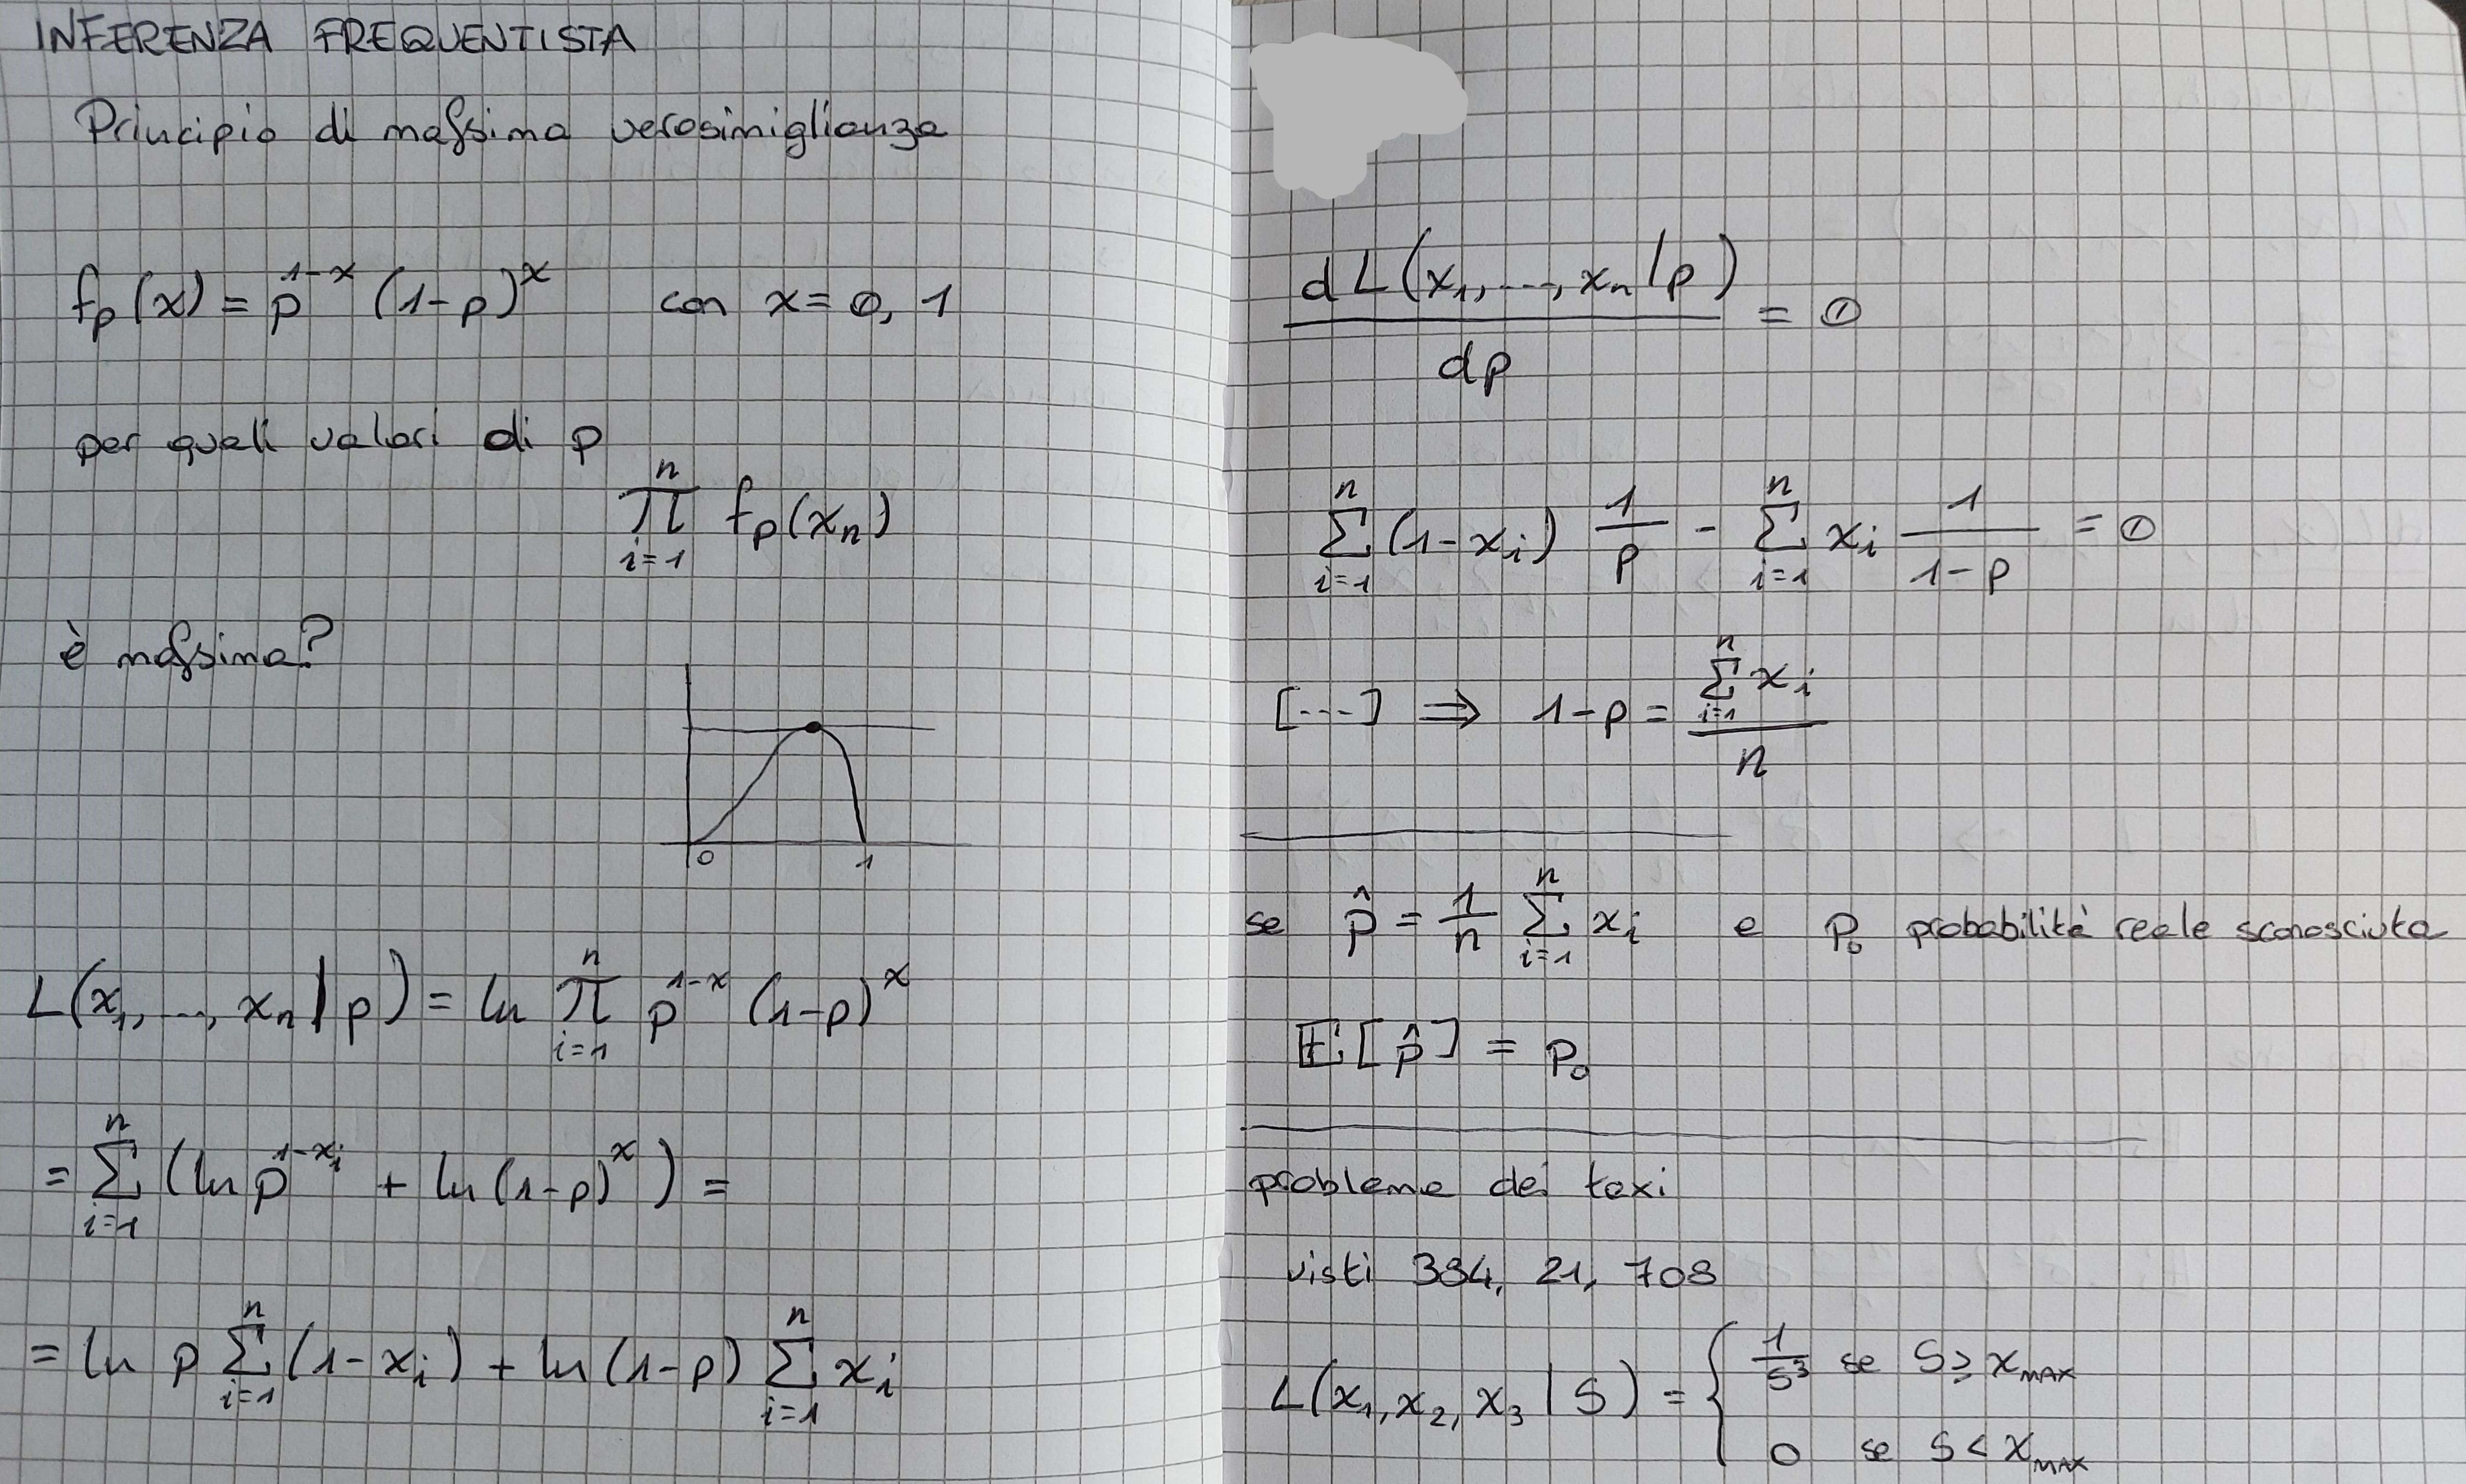 INFERENZA FREQUENTISTA
Principio di massima verosimiglianza
fₚ(x) = p^{1-x} (1-p)^x con x = 0, 1
per quali valori di p
∏_{i=1}^{n} fₚ(xₙ)
è massima?
0 1
L(x₁, ..., xₙ | p) = ln ∏_{i=1}^{n} p^{1-x} (1-p)^x
= ∑_{i=1}^{n} (ln p^{1-xᵢ} + ln (1-p)^x) =
= ln p ∑_{i=1}^{n} (1-xᵢ) + ln (1-p) ∑_{i=1}^{n} xᵢ
dL(x₁, ..., xₙ | p) / dp = 0
∑_{i=1}^{n} (1-xᵢ) 1/p - ∑_{i=1}^{n} xᵢ 1/(1-p) = 0
[...] ⇒ 1-p = ∑_{i=1}^{n} xᵢ / n
se p̂ = 1/n ∑_{i=1}^{n} xᵢ e p₀ probabilità reale sconosciuta
𝔼[p̂] = p₀
problema dei taxi
visti 384, 21, 708
L(x₁, x₂, x₃ | S) = { 1/S³ se S ≥ x_{MAX}
0 se S < x_{MAX}